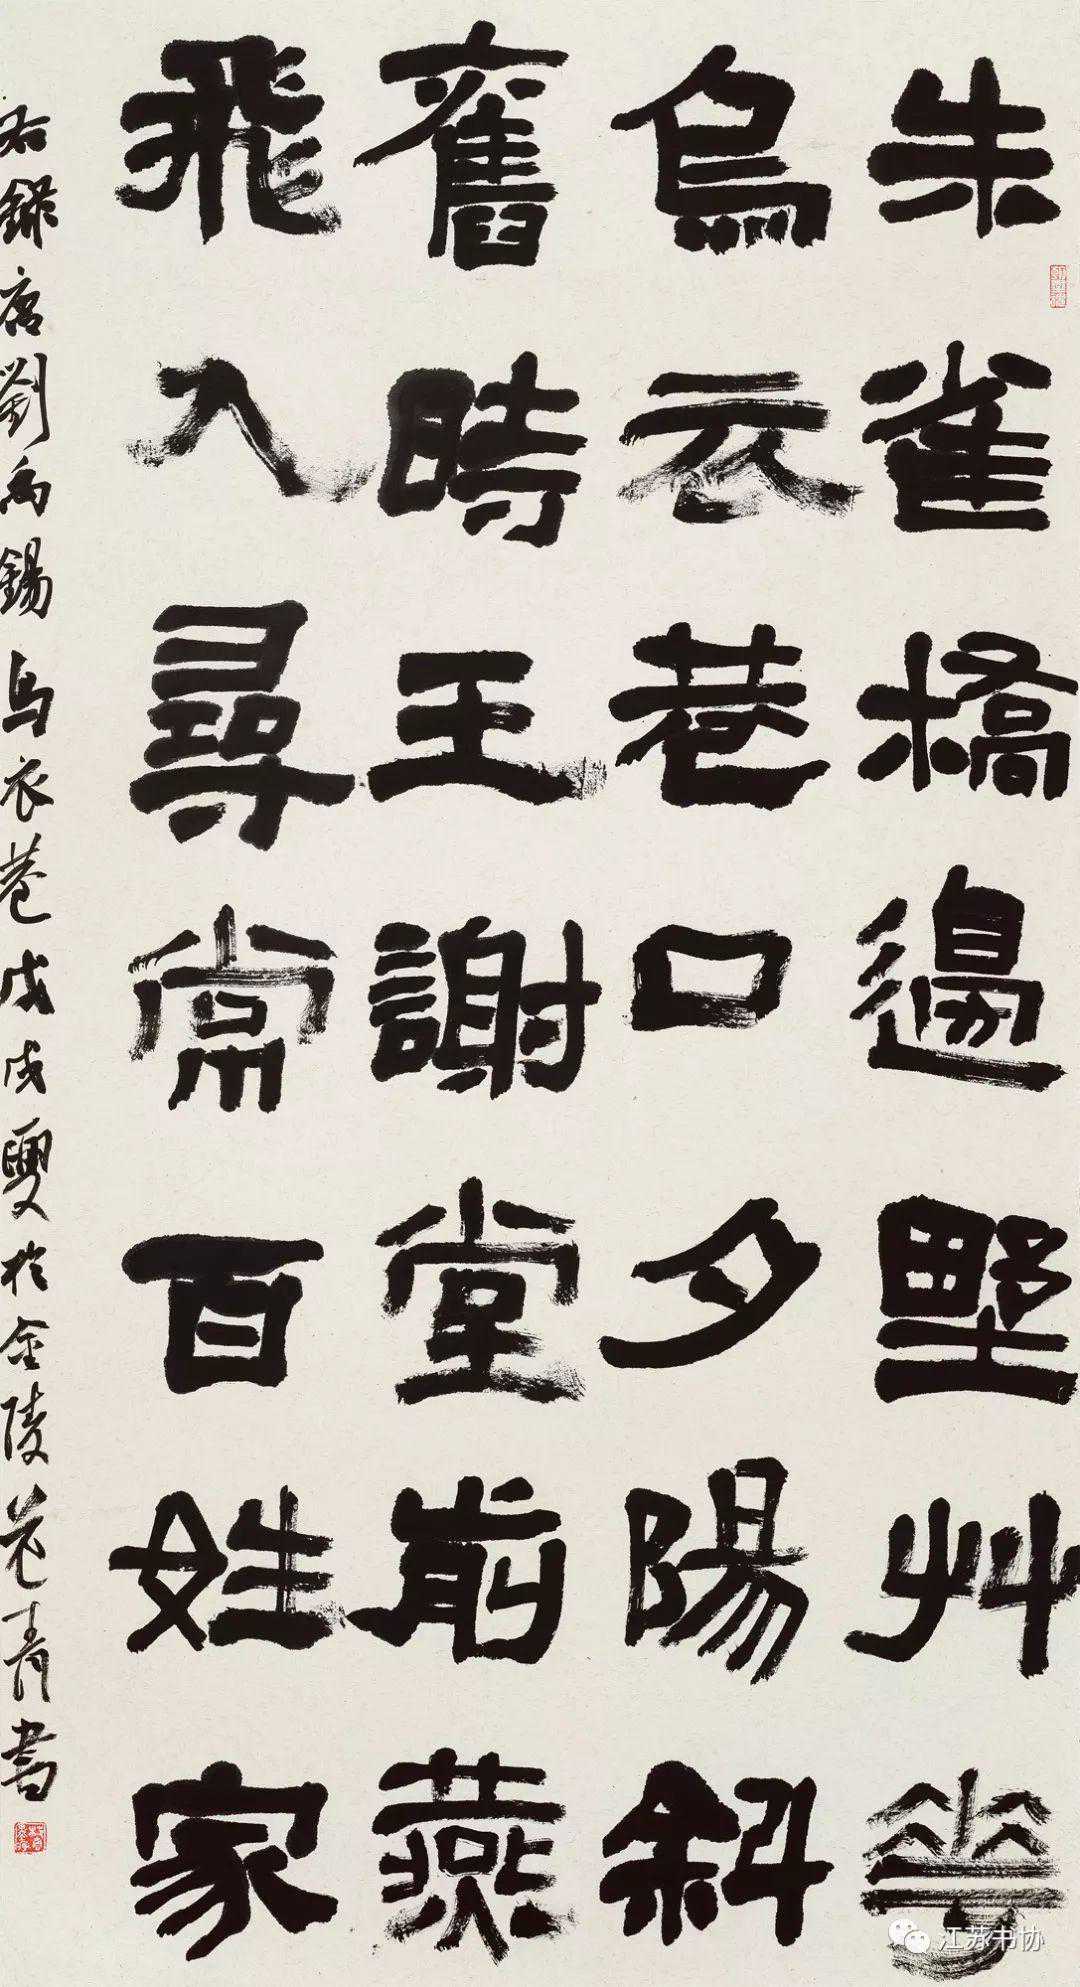 朱雀橋邊野艸華
烏衣巷口夕陽斜
舊時王謝堂前燕
飛入尋常百姓家
右錄唐劉禹錫烏衣巷戊戌夏於金陵范青書
江苏书协